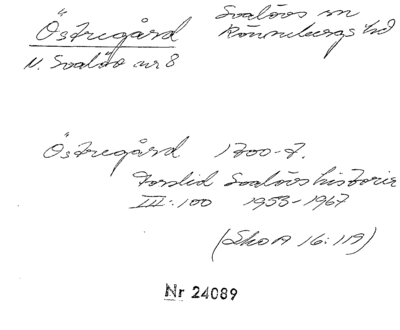 Östregård Svalövs sn
Rönnebergs hd
N. Svalöv nr 8
Östregård 1700-t.
Forslid Svalövs historia
III:100 1953-1967
(SkoA 16:119)
Nr 24089